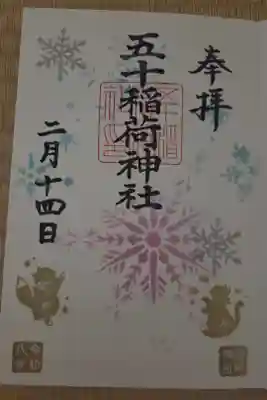 奉拝
五十稲荷神社
二月十四日